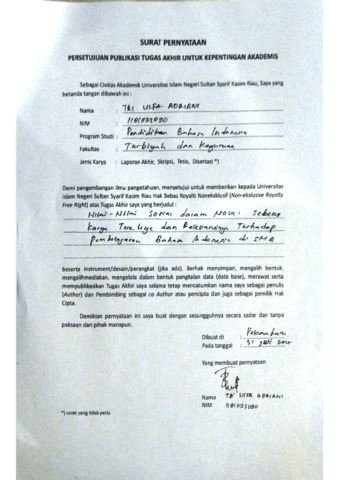 SURAT PERNYATAAN
PERSETUJUAN PUBLIKASI TUGAS AKHIR UNTUK KEPENTINGAN AKADEMIS
Sebagai Civitas Akademik Universitas Islam Negeri Sultan Syarif Kasim Riau, Saya yang
bertanda tangan dibawah ini :
Nama : TRI ULFA ADRIANI
NIM :
Program Studi : Pendidikan Bahasa Indonesia
Fakultas : Tarbiyah dan Keguruan
Jenis Karya : Laporan Akhir, Skripsi, Tesis, Disertasi *)
Demi pengembangan ilmu pengetahuan, menyetujui untuk memberikan kepada Universitas
Islam Negeri Sultan Syarif Kasim Riau Hak Bebas Royalti Noneksklusif (Non-ekslusive Royalty
Free Right) atas Tugas Akhir saya yang berjudul :
Nilai-Nilai Sosial dalam Novel
Karya Tere Liye dan Relevansinya Terhadap
Pembelajaran Bahasa Indonesia di SMA
beserta instrument/desain/perangkat (jika ada). Berhak menyimpan, mengalih bentuk,
mengalihmediakan, mengelola dalam bentuk pangkalan data (data base), merawat serta
mempublikasikan Tugas Akhir saya selama tetap mencatumkan nama saya sebagai penulis
(Author) dan Pembimbing sebagai co Author atau pencipta dan juga sebagai pemilik Hak
Cipta.
Demikian pernyataan ini saya buat dengan sesungguhnya secara sadar dan tanpa
paksaan dari pihak manapun.
Dibuat di : Pekanbaru
Pada tanggal : 31 Juli
Yang membuat pernyataan
Nama TRI ULFA ADRIANI
NIM
*) coret yang tidak perlu